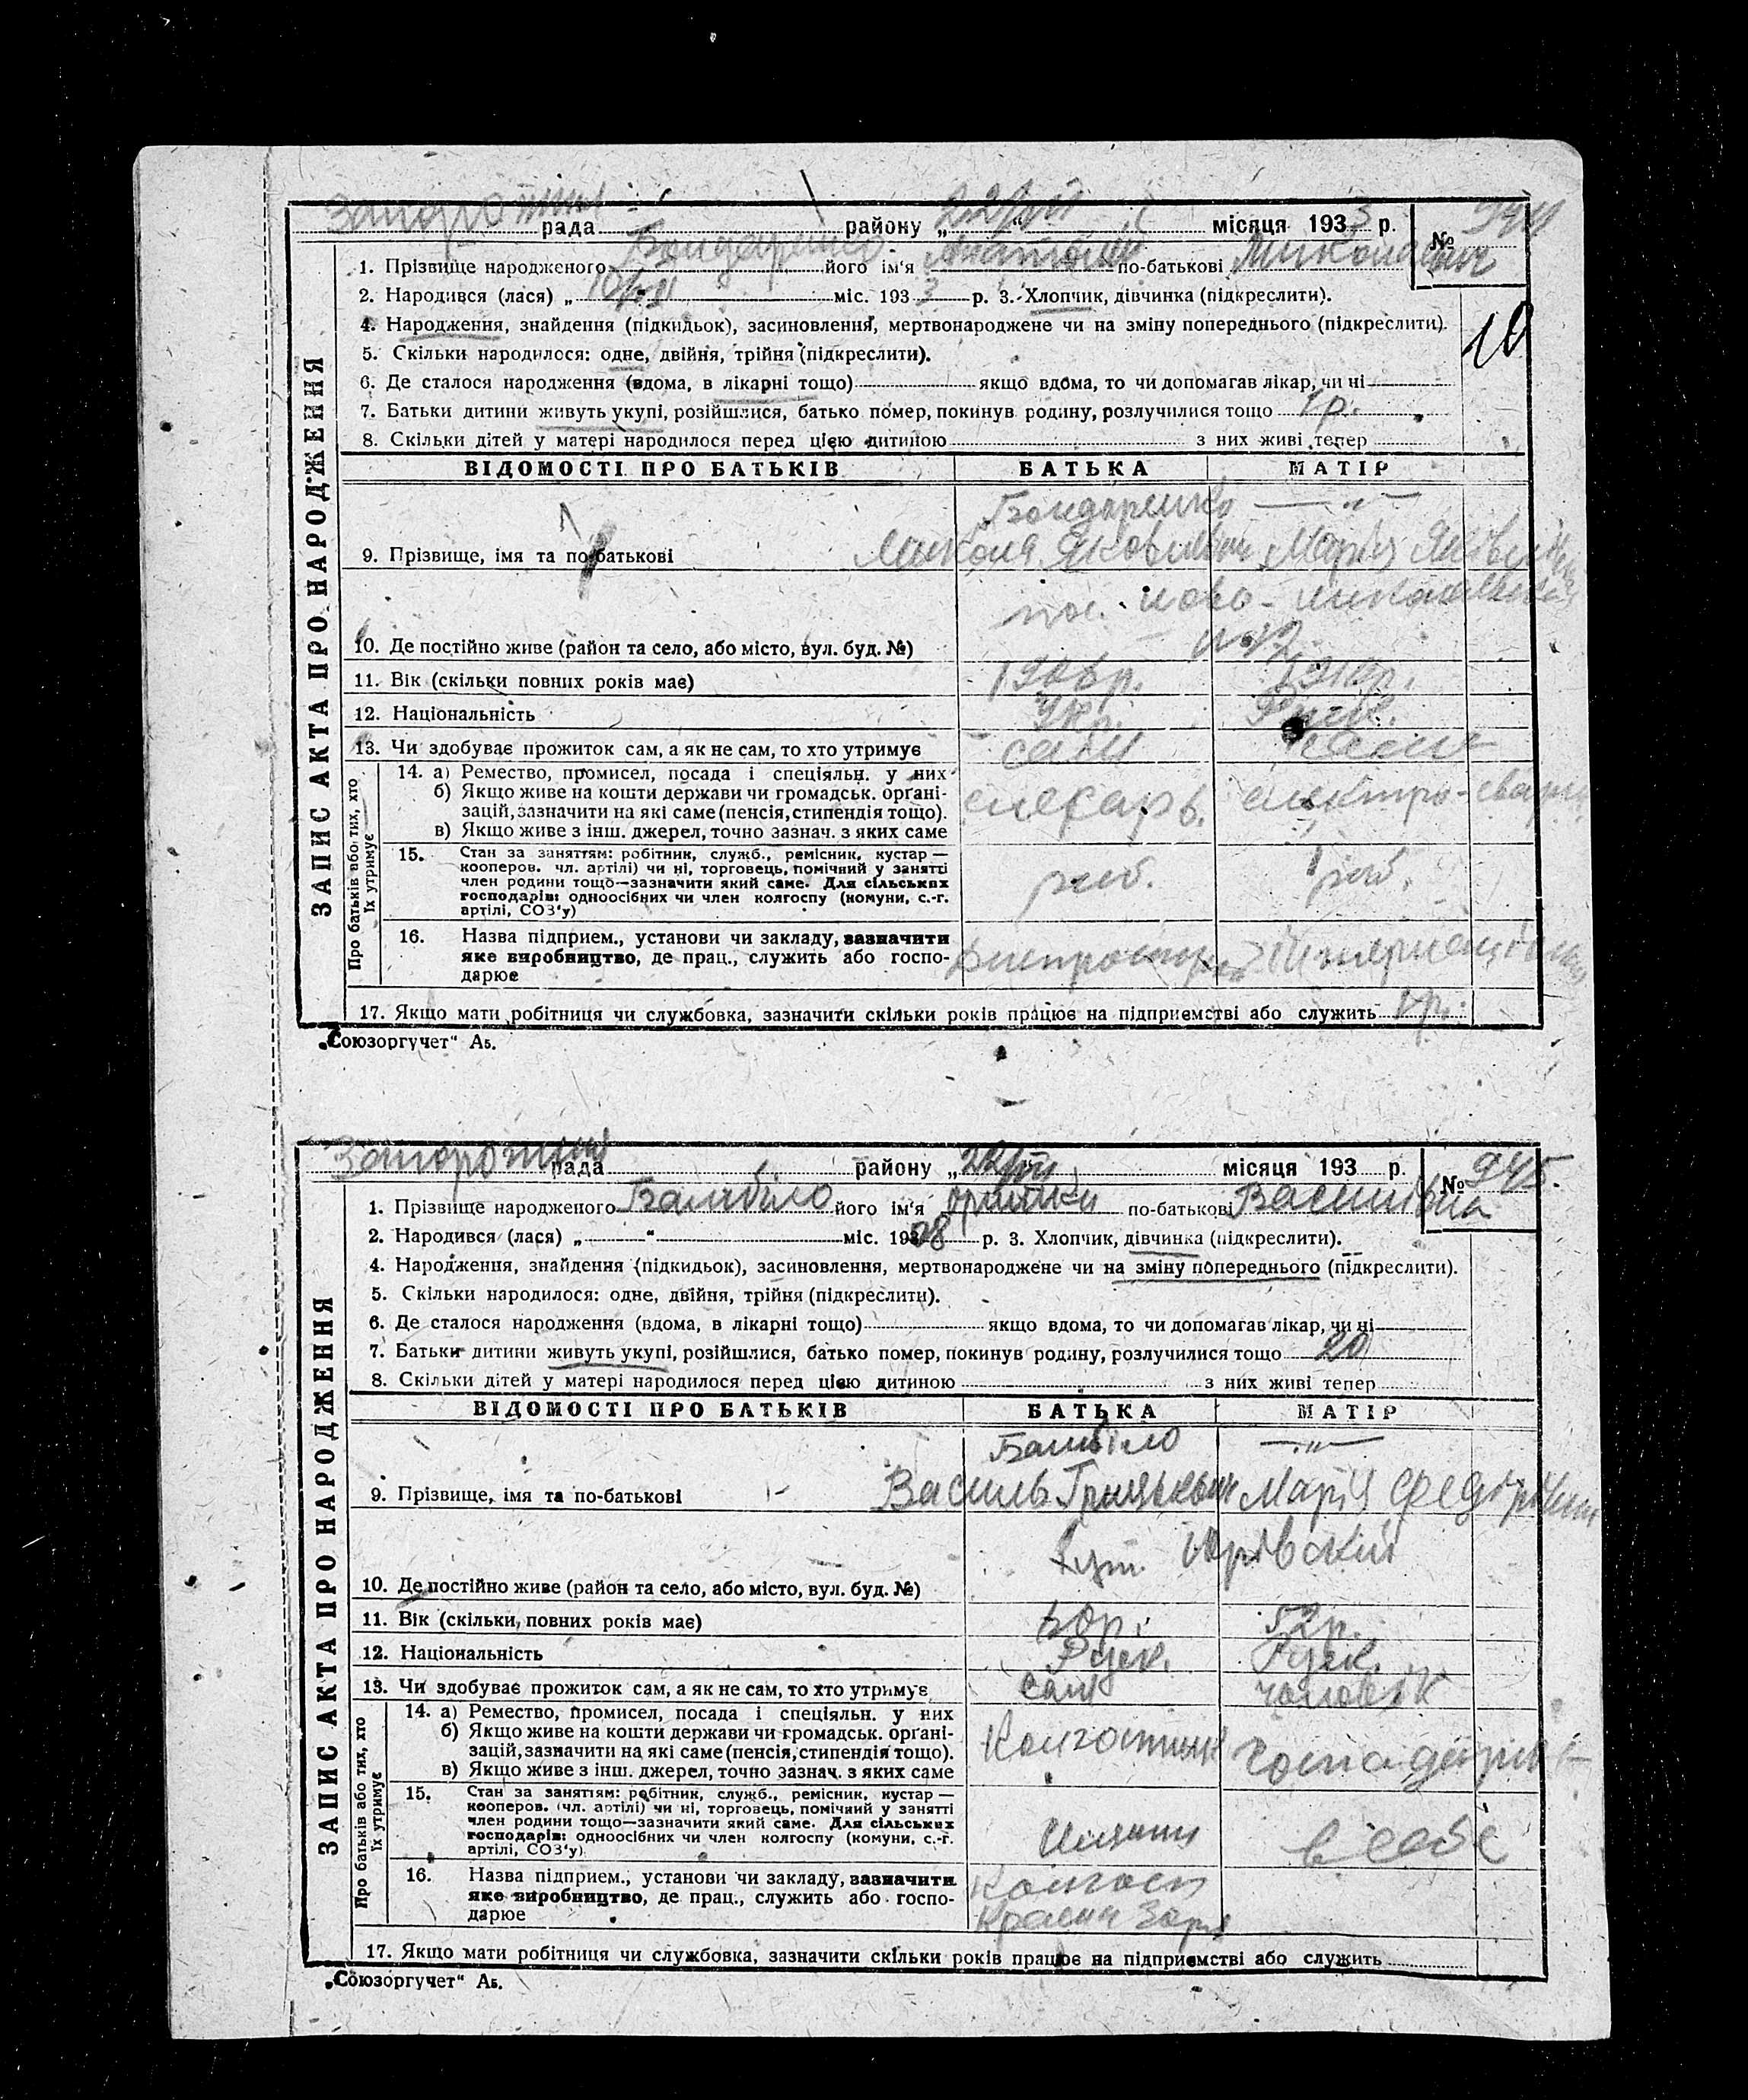 рада района „ 22/VII “ місяця 1933 р. №
1. Прізвище народженого Бондаренко його ім'я Анатолій по-батькові Миколаєвич
2. Народився (лася) „ “ міс. 1933 р. 3. Хлопчик, дівчинка (підкреслити).
10
4. Народження, знайдення (підкидьок), засиновлення, мертвонароджене чи на зміну попереднього (підкреслити).
5. Скільки народилося: одне, двійня, трійня (підкреслити).
6. Де сталося народження (вдома, в лікарні тощо) якщо вдома, то чи допомагав лікар, чи ні
7. Батьки дитини живуть укупі, розійшлися, батько помер, покинув родину, розлучилися тощо 1 р.
8. Скільки дітей у матері народилося перед цією дитиною з них живі тепер
ЗАПИС АКТА ПРО НАРОДЖЕННЯ
ВІДОМОСТІ ПРО БАТЬКІВ БАТЬКА МАТІР
Бондаренко — „ —
9. Прізвище, імя та по-батькові Микола Яковлевич Марія Яківлівна
пос. Ново-
10. Де постійно живе (район та село, або місто, вул. буд. №)
11. Вік (скільки повних років має) 1906 р. 1910 р.
12. Національність Укр.
13. Чи здобуває прожиток сам, а як не сам, то хто утримує сам сама
Про батьків або тих, хто їх утримує
14. а) Ремество, промисел, посада і спеціяльн. у них
б) Якщо живе на кошти держави чи громадськ. орґані-
зацій, зазначити на які саме (пенсія, стипендія тощо).
в) Якщо живе з інш. джерел, точно зазнач. з яких саме
слесарь електро-сварщ.
15. Стан за заняттям: робітник, служб., ремісник, кустар—
кооперов. чл. артілі) чи ні, торговець, помічний у занятті
член родини тощо—зазначити який саме. Для сільських
господарів: одноосібних чи член колгоспу (комуни, с.-г.
артілі, СОЗ'у)
роб. роб.
16. Назва підприєм., установи чи закладу, зазначити
яке виробництво, де прац., служить або госпо-
дарює
Днепрострой
17. Якщо мати робітниця чи службовка, зазначити скільки років працює на підприємстві або служить 1 р.
„Союзоргучет“ Аб.
рада району „ 22/VII “ місяця 193 р. № 945.
1. Прізвище народженого Бамбіло його ім'я по-батькові Василівна
2. Народився (лася) „ “ міс. 1908 р. 3. Хлопчик, дівчинка (підкреслити).
4. Народження, знайдення (підкидьок), засиновлення, мертвонароджене чи на зміну попереднього (підкреслити).
5. Скільки народилося: одне, двійня, трійня (підкреслити).
6. Де сталося народження (вдома, в лікарні тощо) якщо вдома, то чи допомагав лікар, чи ні
7. Батьки дитини живуть укупі, розійшлися, батько помер, покинув родину, розлучилися тощо 20
8. Скільки дітей у матері народилося перед цією дитиною з них живі тепер
ЗАПИС АКТА ПРО НАРОДЖЕННЯ
ВІДОМОСТІ ПРО БАТЬКІВ БАТЬКА МАТІР
Бамбіло — „ —
9. Прізвище, імя та по-батькові Василь Грицькович Марія
хут.
10. Де постійно живе (район та село, або місто, вул. буд. №)
11. Вік (скільки повних років має) 52 р.
12. Національність Руск. Руск.
13. Чи здобуває прожиток сам, а як не сам, то хто утримує сам чоловік
Про батьків або тих, хто їх утримує
14. а) Ремество, промисел, посада і спеціяльн. у них
б) Якщо живе на кошти держави чи громадськ. орґані-
зацій, зазначити на які саме (пенсія, стипендія тощо).
в) Якщо живе з інш. джерел, точно зазнач. з яких саме
Колгоспник
15. Стан за заняттям: робітник, служб., ремісник, кустар—
кооперов. (чл. артілі) чи ні, торговець, помічний у занятті
член родини тощо—зазначити який саме. Для сільських
господарів: одноосібних чи член колгоспу (комуни, с.-г.
артілі, СОЗ'у)
в себе
16. Назва підприєм., установи чи закладу, зазначити
яке виробництво, де прац., служить або госпо-
дарює
Колгосп
17. Якщо мати робітниця чи службовка, зазначити скільки років працює на підприємстві або служить
„Союзоргучет“ Аб.